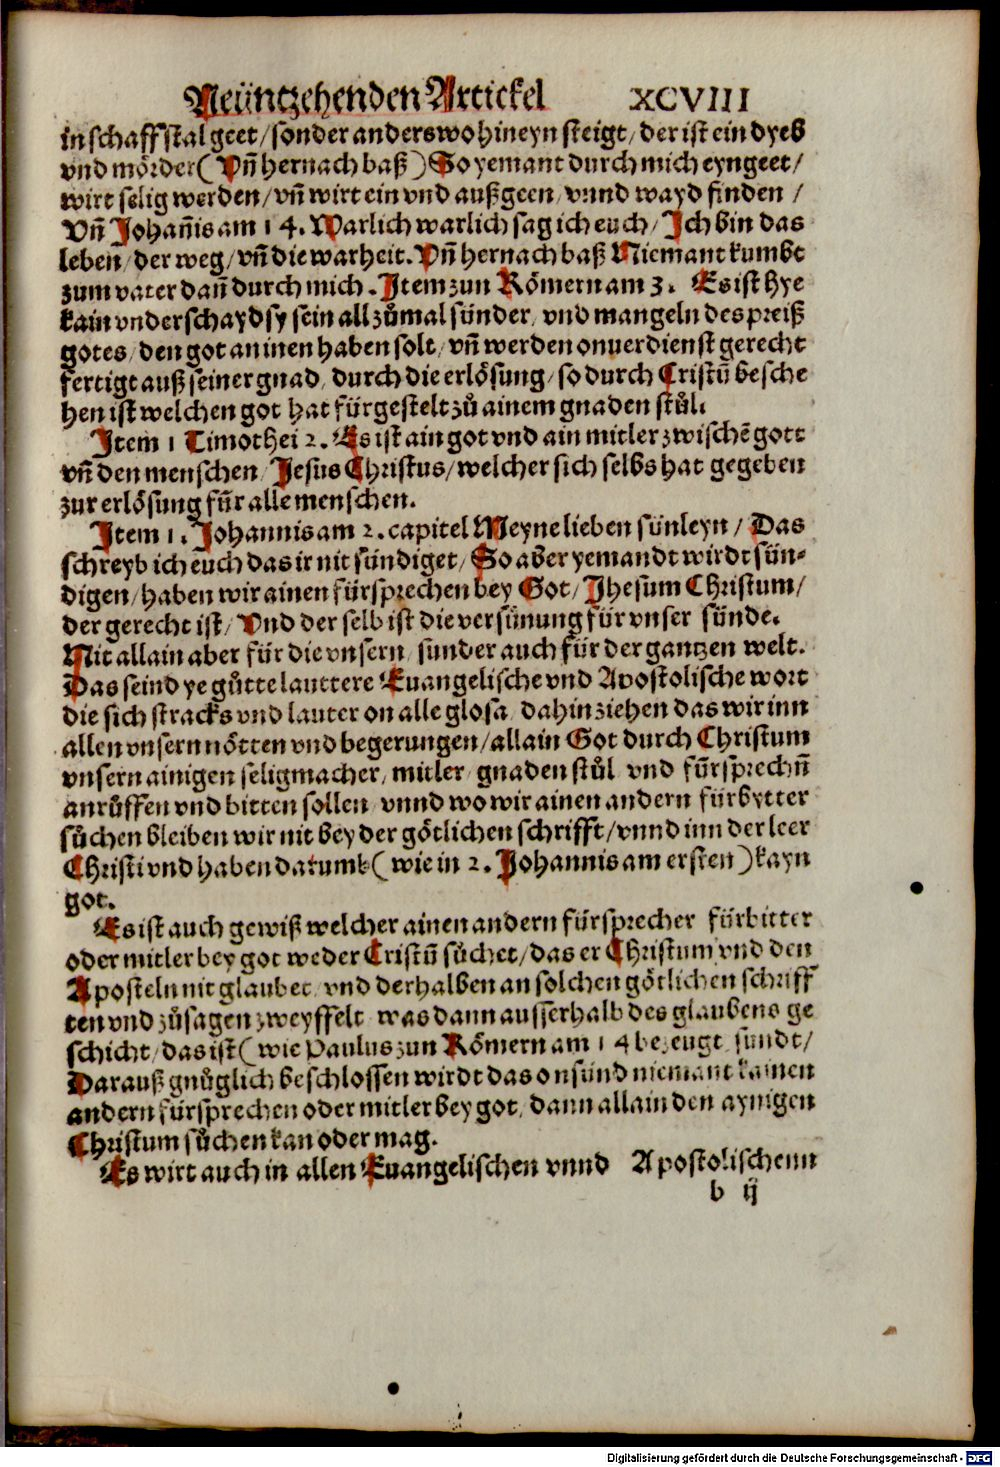 Neüntzehenden Artickel XCVIII
in schaffstal geet/ sonder anderswo hineyn steigt/ der ist ein dyeb
vnd mörder (Vñ hernach baß) So yemant durch mich eyngeet/
wirt selig werden/ vñ wirt ein vnd außgeen/ vnnd wayd finden /
Vñ Johañis am 14. Warlich warlich sag ich euch/ Ich bin das
leben/ der weg/ vñ die warheit. Vñ hernach baß Niemant kumbt
zum vater dañ durch mich. Item zun Römern am 3. Es ist hye
kain vnderschayd sy sein all zůmal sünder/ vnd mangeln des preiß
gotes/ den got an inen haben solt/ vñ werden on verdienst gerecht
fertigt auß seiner gnad/ durch die erlösung/ so durch Cristū besche
hen ist welchen got hat fürgestelt zů ainem gnaden stůl.
Item 1 Timothei 2. Es ist ain got vnd ain mitler zwischē gott
vñ den menschen/ Jesus Christus/ welcher sich selbs hat gegeben
zur erlösung für alle menschen.
Item 1. Johannis am 2. capitel Meyne lieben sünleyn/ Das
schreyb ich euch das ir nit sündiget/ So aber yemandt wirdt sün-
digen/ haben wir ainen fürsprechen bey Got/ Jhesum Christum/
der gerecht ist/ Vnd der selb ist die versünung für vnser sünde.
Nit allain aber für die vnsern/ sunder auch für der gantzen welt.
Das seind ye gůtte lauttere Euangelische vnd Apostolische wort
die sich stracks vnd lauter on alle glosa/ dahin ziehen das wir inn
allen vnsern nötten vnd begerungen/ allain Got durch Christum
vnsern ainigen seligmacher/ mitler/ gnaden stůl vnd fürsprechñ
anrůffen vnd bitten sollen/ vnnd wo wir ainen andern fürbytter
sůchen bleiben wir nit bey der götlichen schrifft/ vnnd inn der leer
Christi vnd haben darumb (wie in 2. Johannis am ersten) kayn
got.
Es ist auch gewiß welcher ainen andern fürsprecher fürbitter
oder mitler bey got weder Cristū sůchet/ das er Christum vnd den
Aposteln nit glaubet/ vnd derhalben an solchen götlichen schriff
ten vnd zůsagen zweyffelt/ was dann ausserhalb des glaubens ge
schicht/ das ist (wie Paulus zun Römern am 14 bezeugt/ sundt/
Darauß gnůglich beschlossen wirdt das on sünd niemant kainen
andern fürsprechen oder mitler bey got/ dann allain den aynigen
Christum sůchen kan oder mag.
Es wirt auch in allen Euangelischen vnnd Apostolischenn
b ij
Digitalisierung gefördert durch die Deutsche Forschungsgemeinschaft - DFG